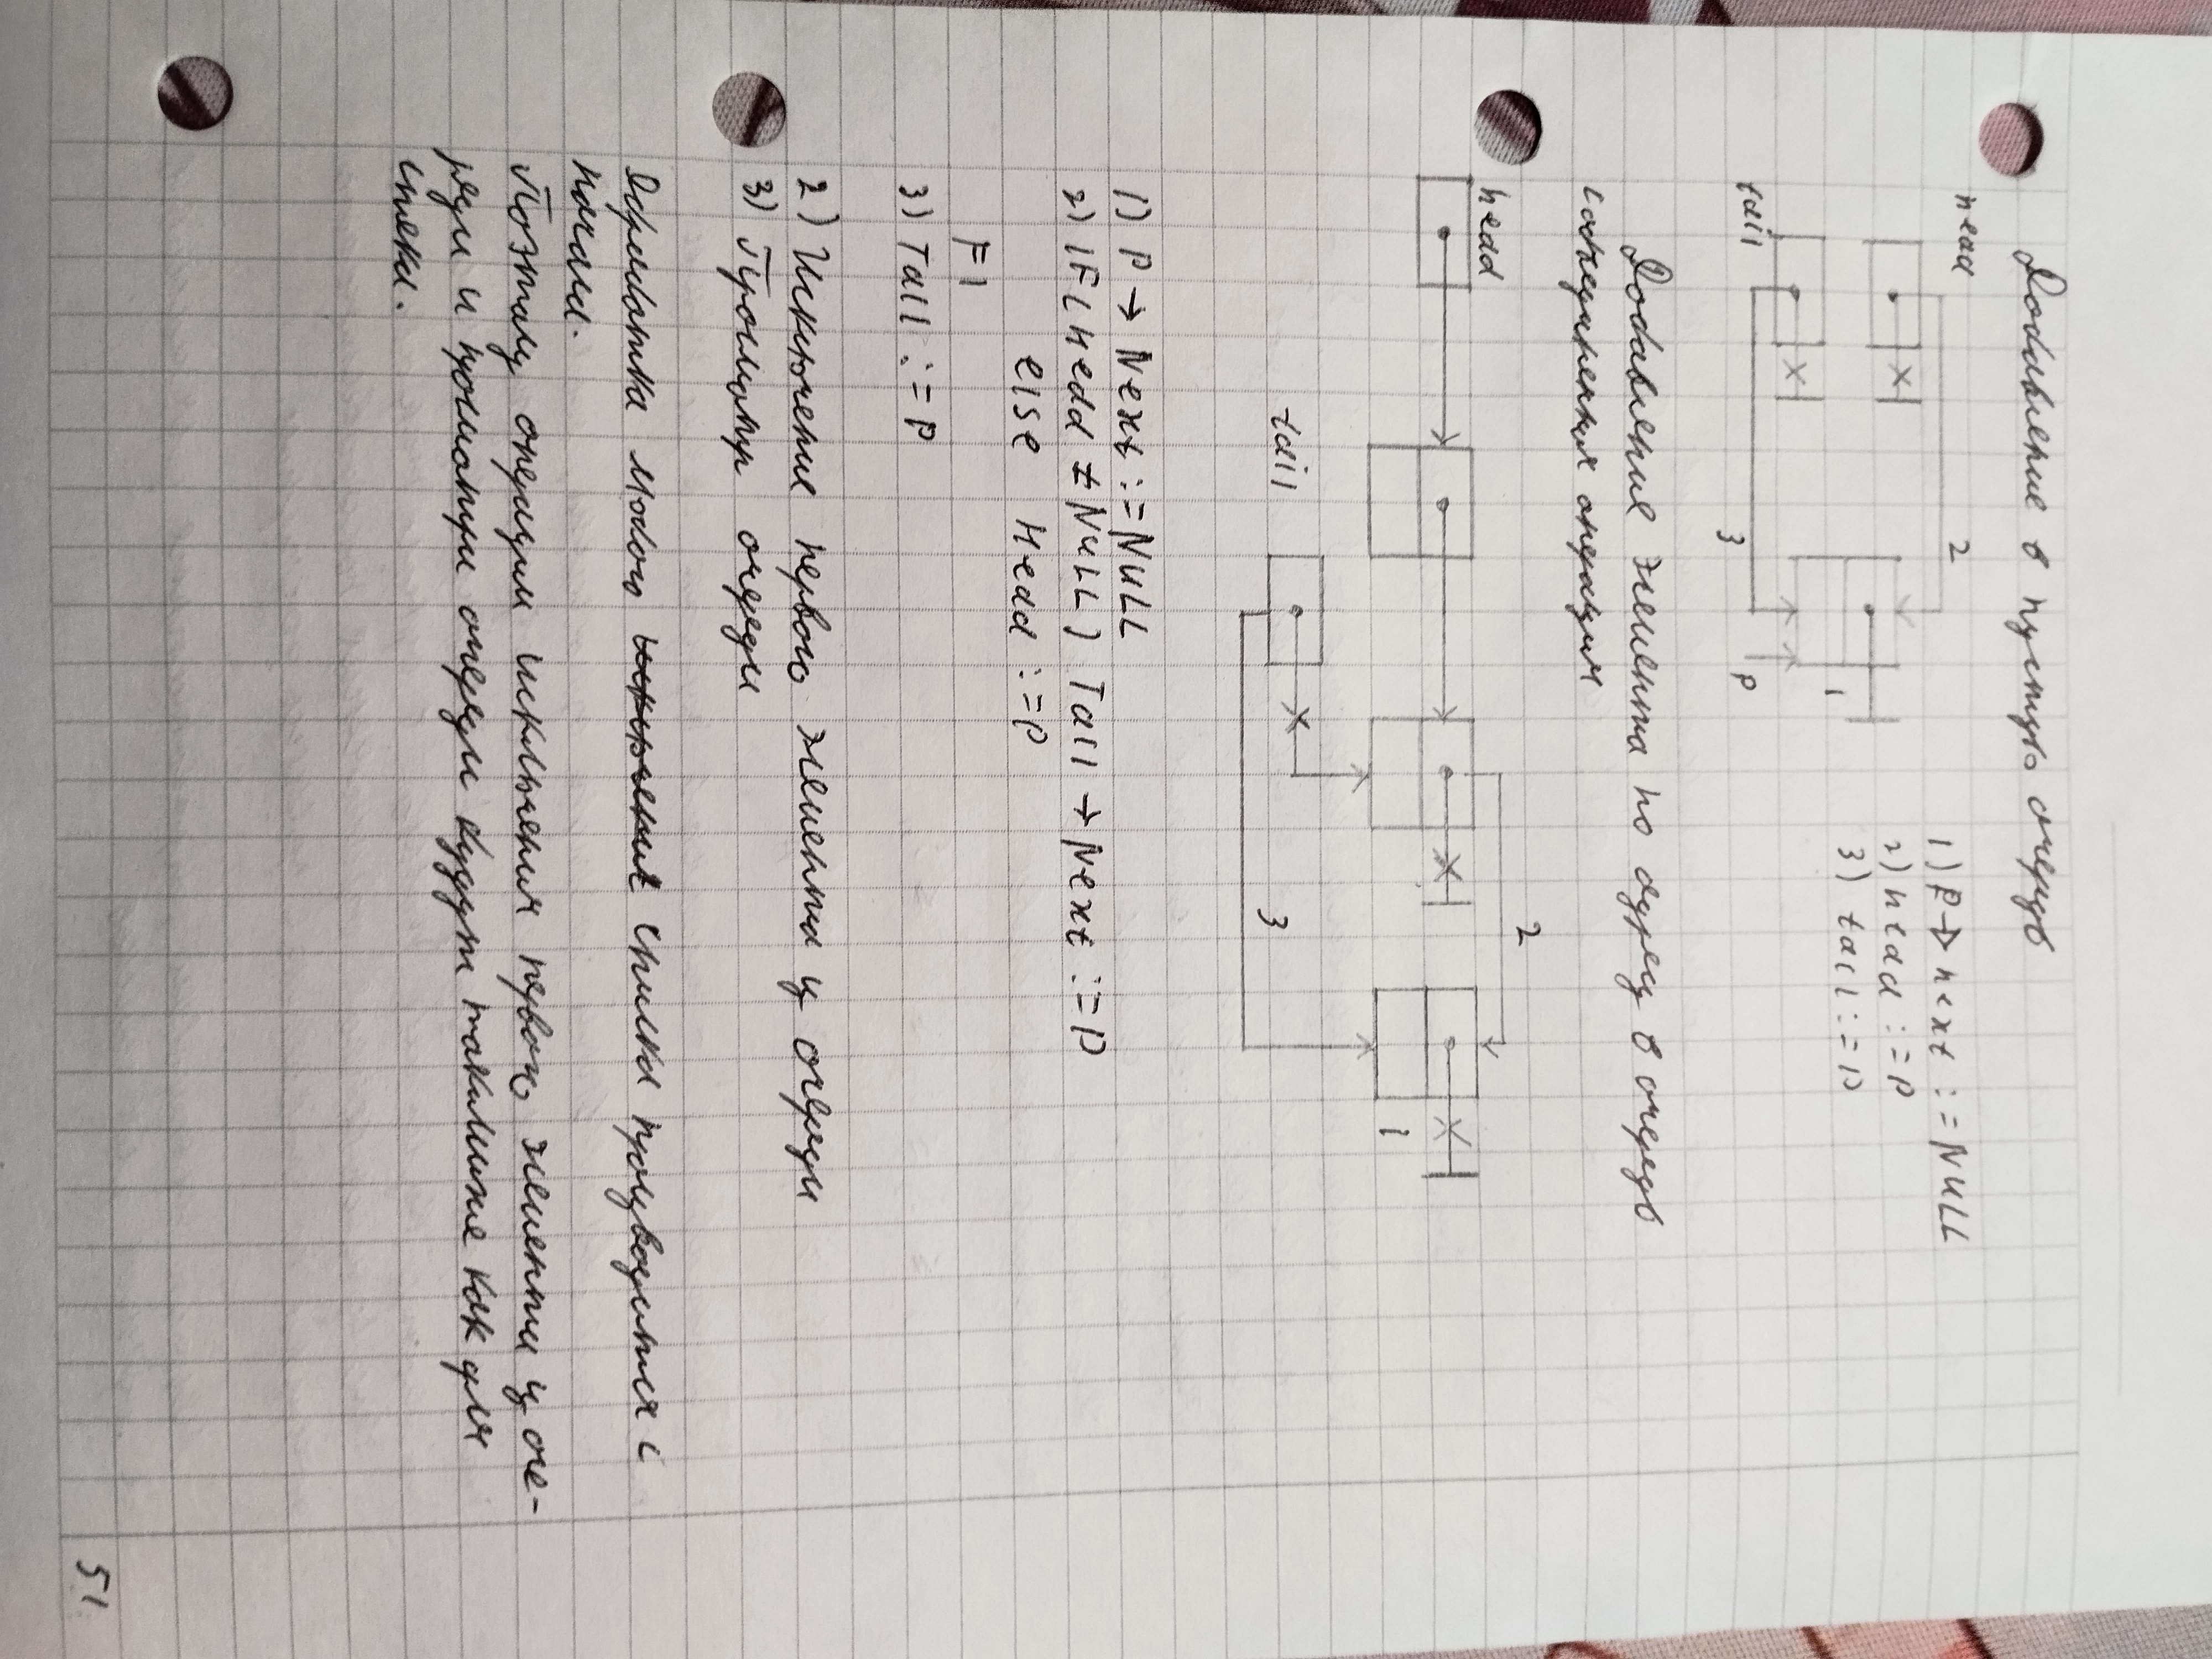 Добавление в пустую очередь
head
2
1) P→ next := NULL
2) head := P
3) tail := P
1
tail
3
P
Добавление элемента по адресу в очередь
(объединенная операция
2
head
1
tail
3
1) P → Next := NULL
2) IF(Head ≠ NULL) Tail → Next := P
else Head := P
FI
3) Tail := P
2) Исключение первого элемента из очереди
3) Просмотр очереди
Обработка любого списка производится с
начала.
Поэтому операции исключения первого элемента из оче-
реди и просмотра очереди будут такимиже как для
стека.
51